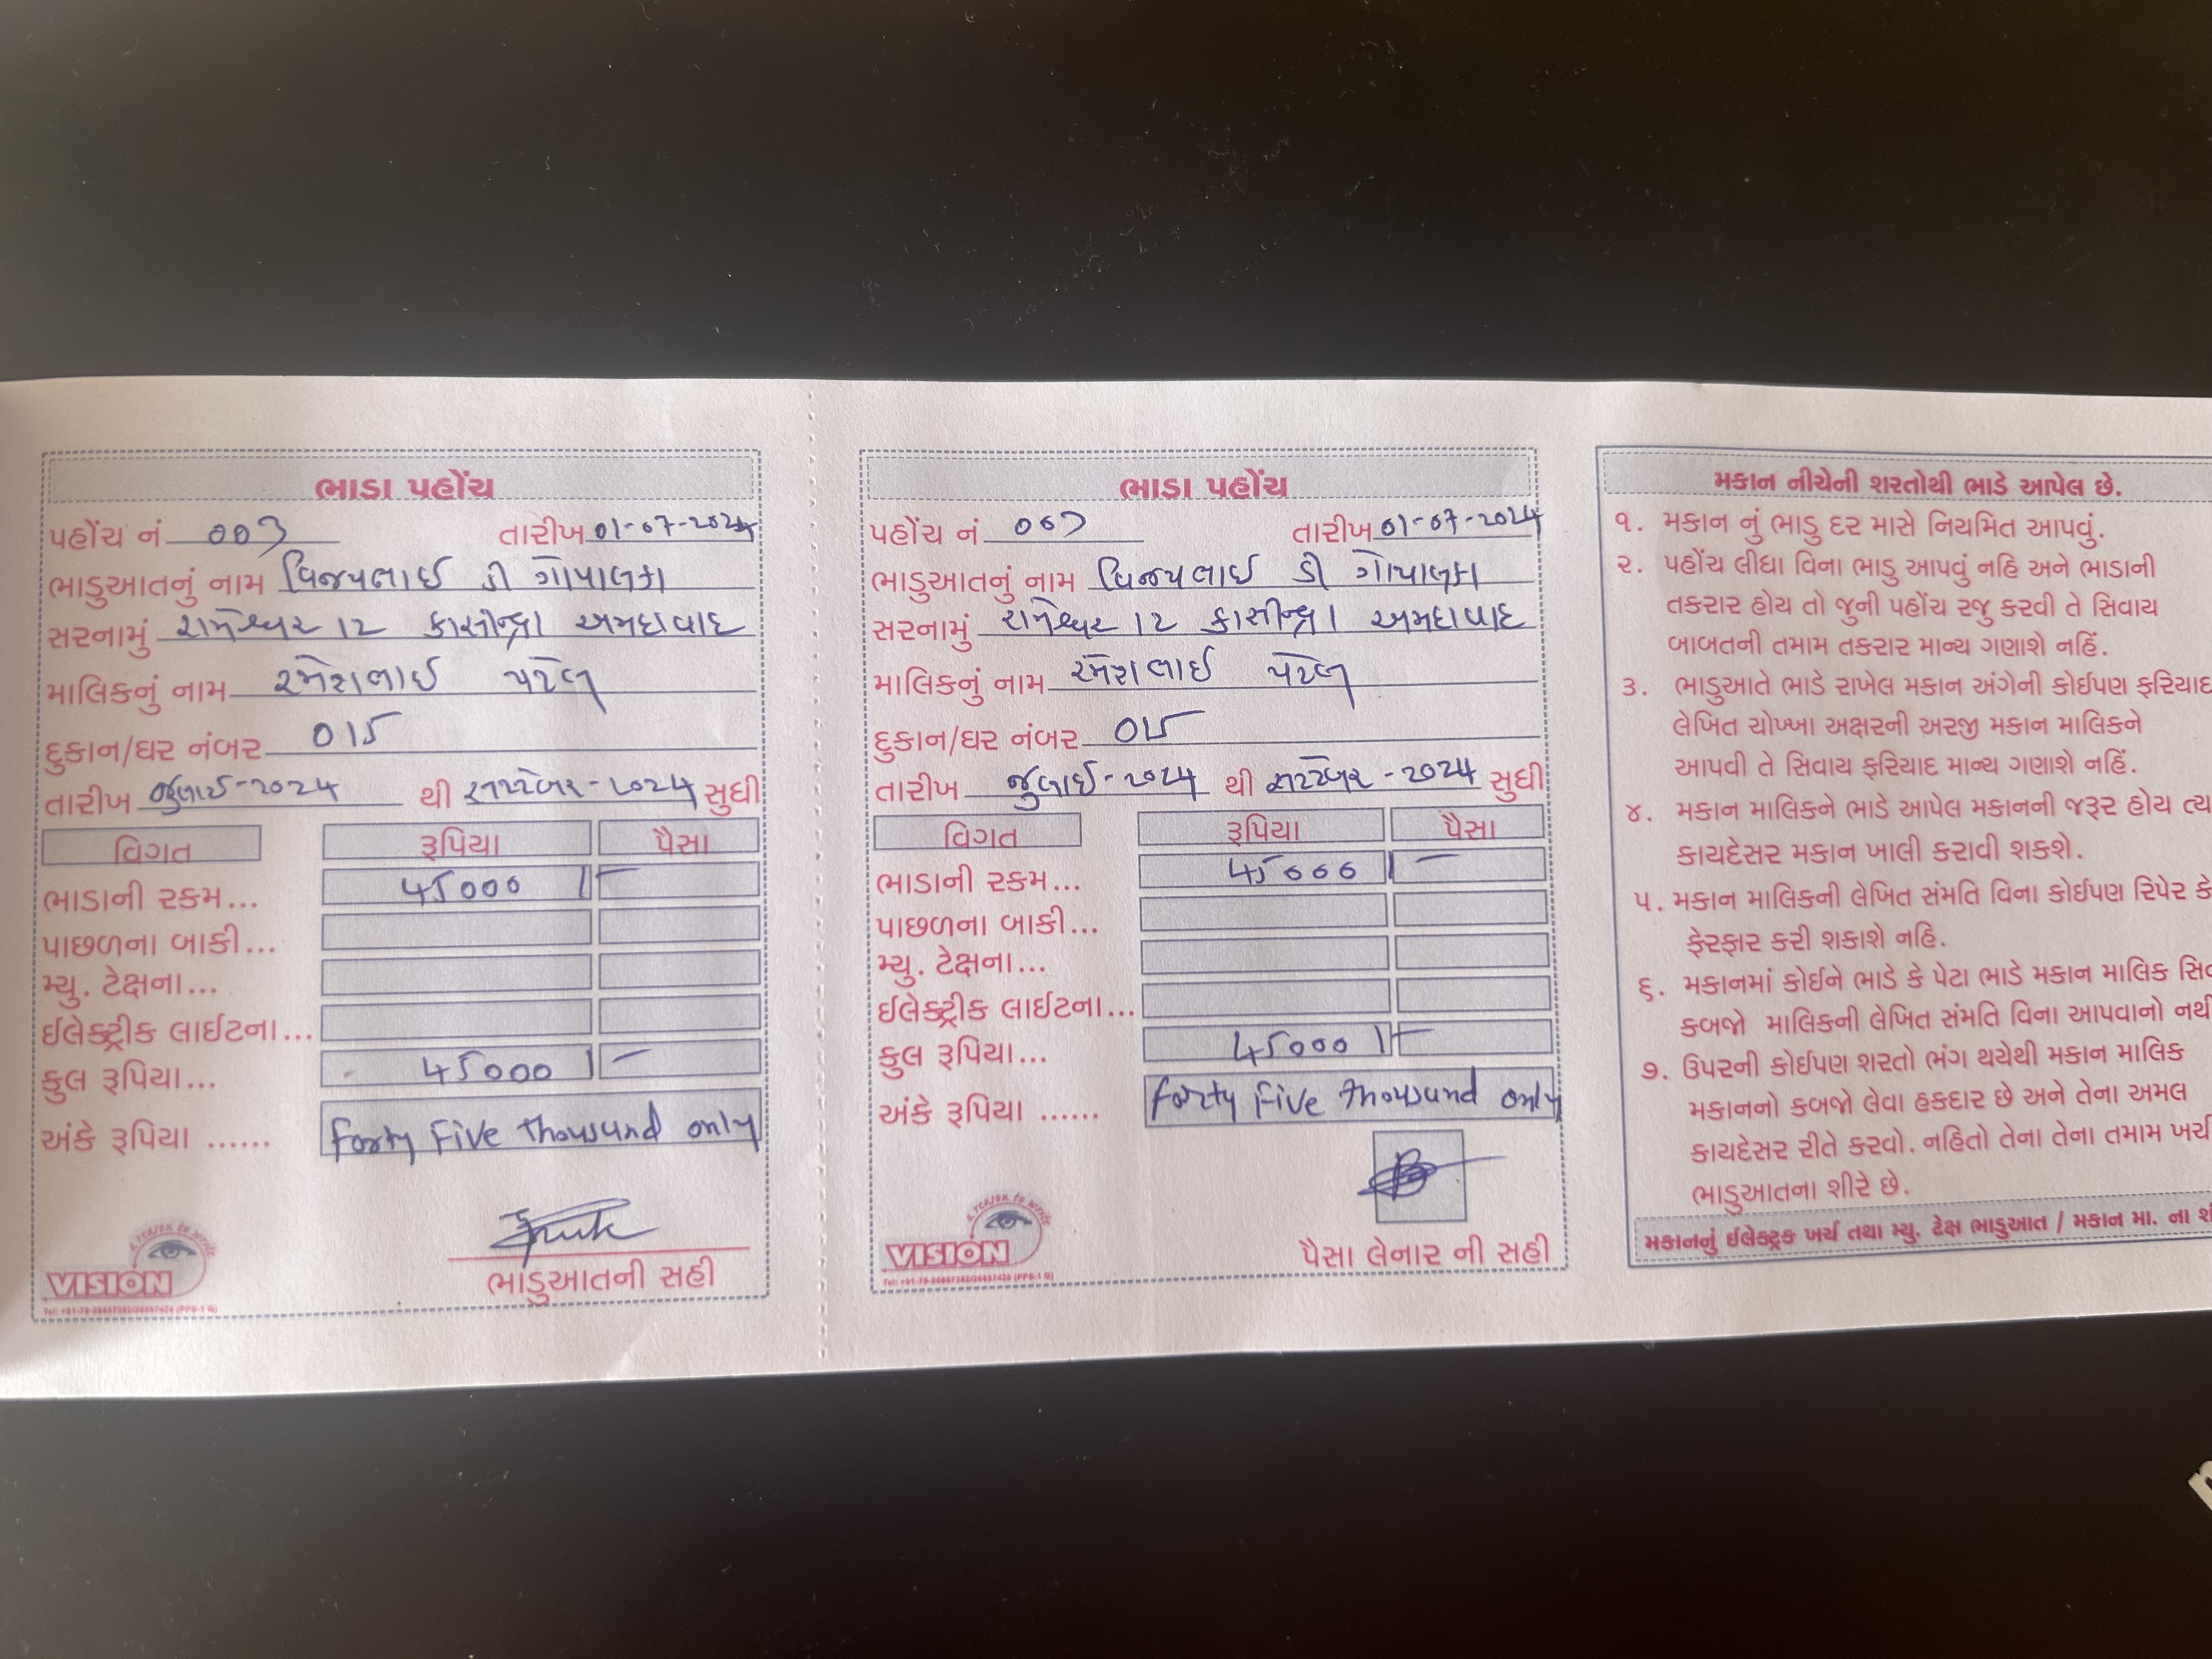 ભાડા પહોંચ
પહોંચ નં ૦૦૩ તારીખ ૦૧-૦૭-૨૦૨૫
ભાડુઆતનું નામ વિજયભાઇ ડી ગોપાલકા
સરનામું રામેશ્વર ૧૨ કાસીન્દ્રા અમદાવાદ
માલિકનું નામ રમેશભાઇ પટેલ
દુકાન/ઘર નંબર 015
તારીખ જુલાઈ-૨૦૨૫ થી સપ્ટેમ્બર-૨૦૨૫ સુધી
વિગત રૂપિયા પૈસા
ભાડાની રકમ... 45000/-
પાછળના બાકી...
મ્યુ. ટેક્ષના...
ઈલેક્ટ્રીક લાઈટના...
કુલ રૂપિયા... 45000/-
અંકે રૂપિયા ...... Forty Five Thousand only
VISION
ભાડુઆતની સહી
ભાડા પહોંચ
પહોંચ નં ૦૦૩ તારીખ ૦૧-૦૭-૨૦૨૫
ભાડુઆતનું નામ વિજયભાઇ ડી ગોપાલકા
સરનામું રામેશ્વર ૧૨ કાસીન્દ્રા અમદાવાદ
માલિકનું નામ રમેશભાઇ પટેલ
દુકાન/ઘર નંબર 015
તારીખ જુલાઈ-૨૦૨૫ થી સપ્ટેમ્બર-૨૦૨૫ સુધી
વિગત રૂપિયા પૈસા
ભાડાની રકમ... 45000/-
પાછળના બાકી...
મ્યુ. ટેક્ષના...
ઈલેક્ટ્રીક લાઈટના...
કુલ રૂપિયા... 45000/-
અંકે રૂપિયા ...... Forty Five Thousand only
VISION
પૈસા લેનાર ની સહી
મકાન નીચેની શરતોથી ભાડે આપેલ છે.
૧. મકાન નું ભાડુ દર માસે નિયમિત આપવું.
૨. પહોંચ લીધા વિના ભાડુ આપવું નહિ અને ભાડાની
તકરાર હોય તો જુની પહોંચ રજુ કરવી તે સિવાય
બાબતની તમામ તકરાર માન્ય ગણાશે નહિં.
૩. ભાડુઆતે ભાડે રાખેલ મકાન અંગેની કોઈપણ ફરિયાદ
લેખિત ચોખ્ખા અક્ષરની અરજી મકાન માલિકને
આપવી તે સિવાય ફરિયાદ માન્ય ગણાશે નહિં.
૪. મકાન માલિકને ભાડે આપેલ મકાનની જરૂર હોય ત્યા
કાયદેસર મકાન ખાલી કરાવી શકશે.
૫. મકાન માલિકની લેખિત સંમતિ વિના કોઈપણ રિપેર કે
ફેરફાર કરી શકાશે નહિ.
૬. મકાનમાં કોઈને ભાડે કે પેટા ભાડે મકાન માલિક સિ
કબજો માલિકની લેખિત સંમતિ વિના આપવાનો નથી
૭. ઉપરની કોઈપણ શરતો ભંગ થયેથી મકાન માલિક
મકાનનો કબજો લેવા હકદાર છે અને તેના અમલ
કાયદેસર રીતે કરવો. નહિતો તેના તેના તમામ ખર્ચ
ભાડુઆતના શીરે છે.
મકાનનું ઈલેક્ટ્રૂક ખર્ચ તથા મ્યુ. ટેક્ષ ભાડુઆત / મકાન મા. ના શી